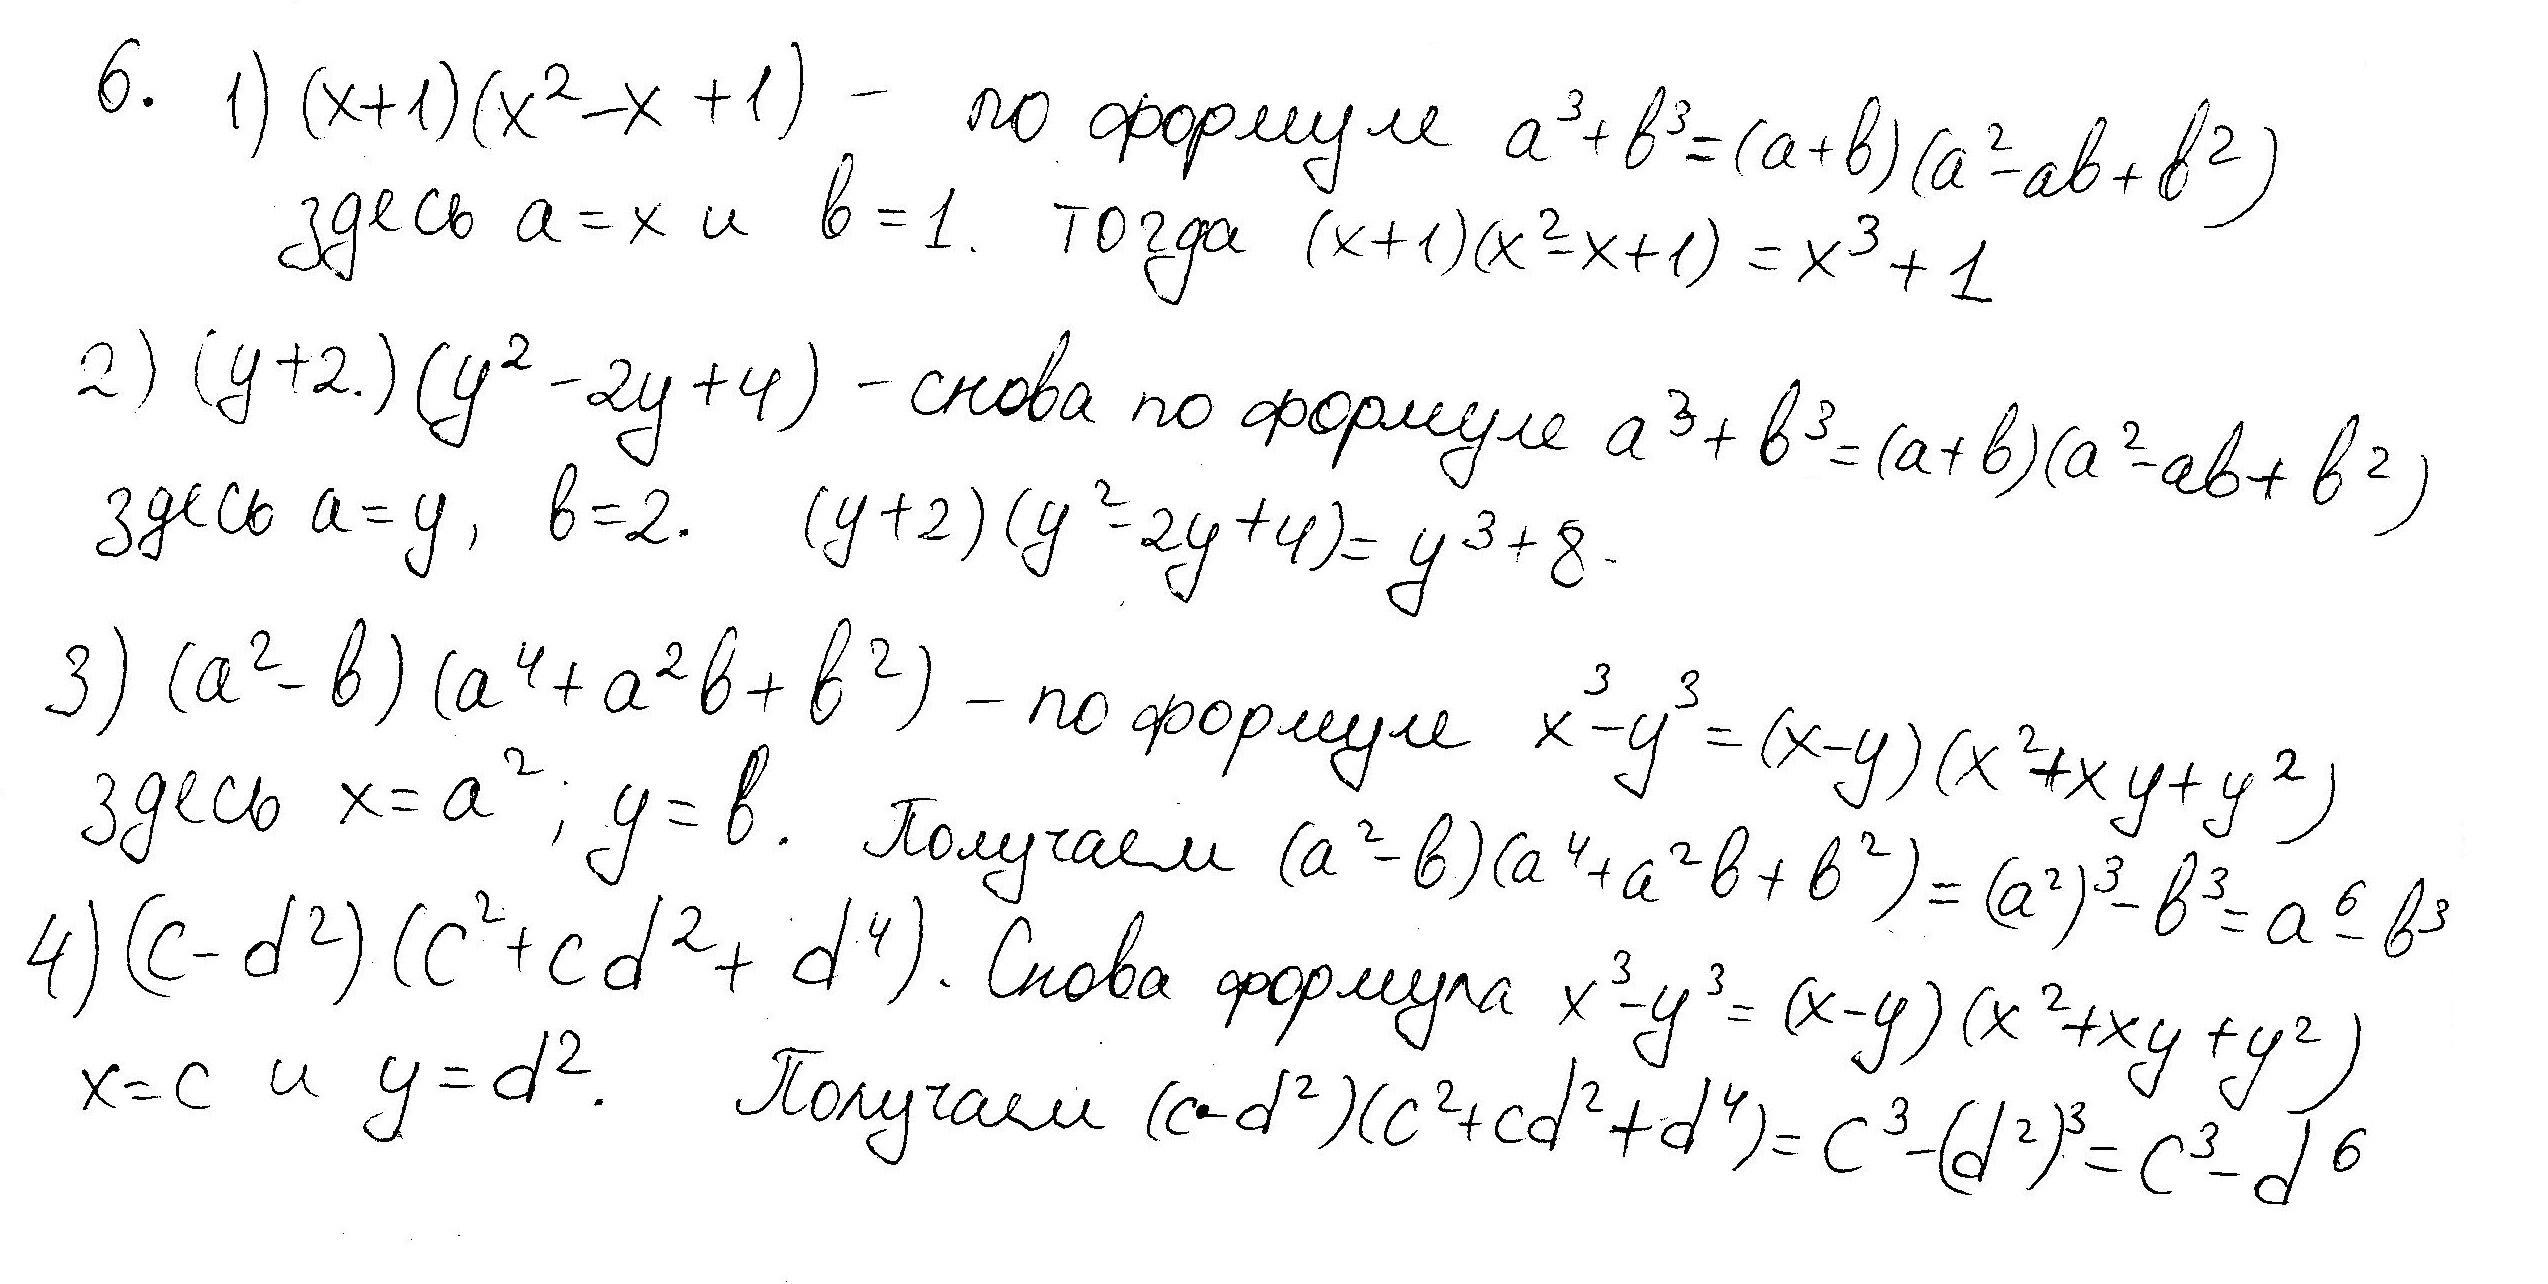 6. 1) (x+1)(x²-x+1) - по формуле a³+b³=(a+b)(a²-ab+b²)
здесь a=x и b=1. тогда (x+1)(x²-x+1)=x³+1
2) (y+2.)(y²-2y+4) - снова по формуле a³+b³=(a+b)(a²-ab+b²)
здесь a=y, b=2. (y+2)(y²-2y+4)=y³+8.
3) (a²-b)(a⁴+a²b+b²) - по формуле x³-y³=(x-y)(x²+xy+y²)
здесь x=a²; y=b. Получаем (a²-b)(a⁴+a²b+b²)=(a²)³-b³=a⁶-b³
4) (c-d²)(c²+cd²+d⁴). Снова формула x³-y³=(x-y)(x²+xy+y²)
x=c и y=d². Получаем (c-d²)(c²+cd²+d⁴)=c³-(d²)³=c³-d⁶